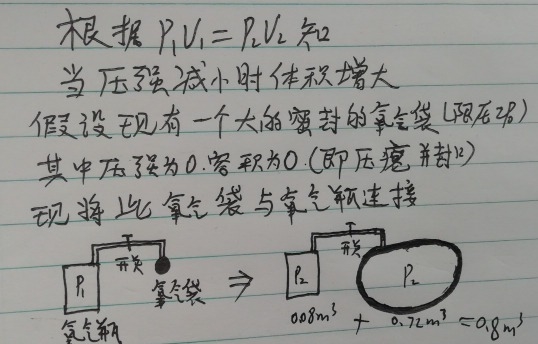 根据 P₁V₁=P₂V₂ 知
当压强减小时体积增大
假设现有一个大的密封的氧气袋(限压2P₀)
其中压强为0.容积为0.(即压瘪并封口)
现将此氧气袋与氧气瓶连接
P₁ 开关 氧气袋 ⇒ P₂ 开关 P₂
氧气瓶 0.08m³ + 0.72m³ =0.8m³